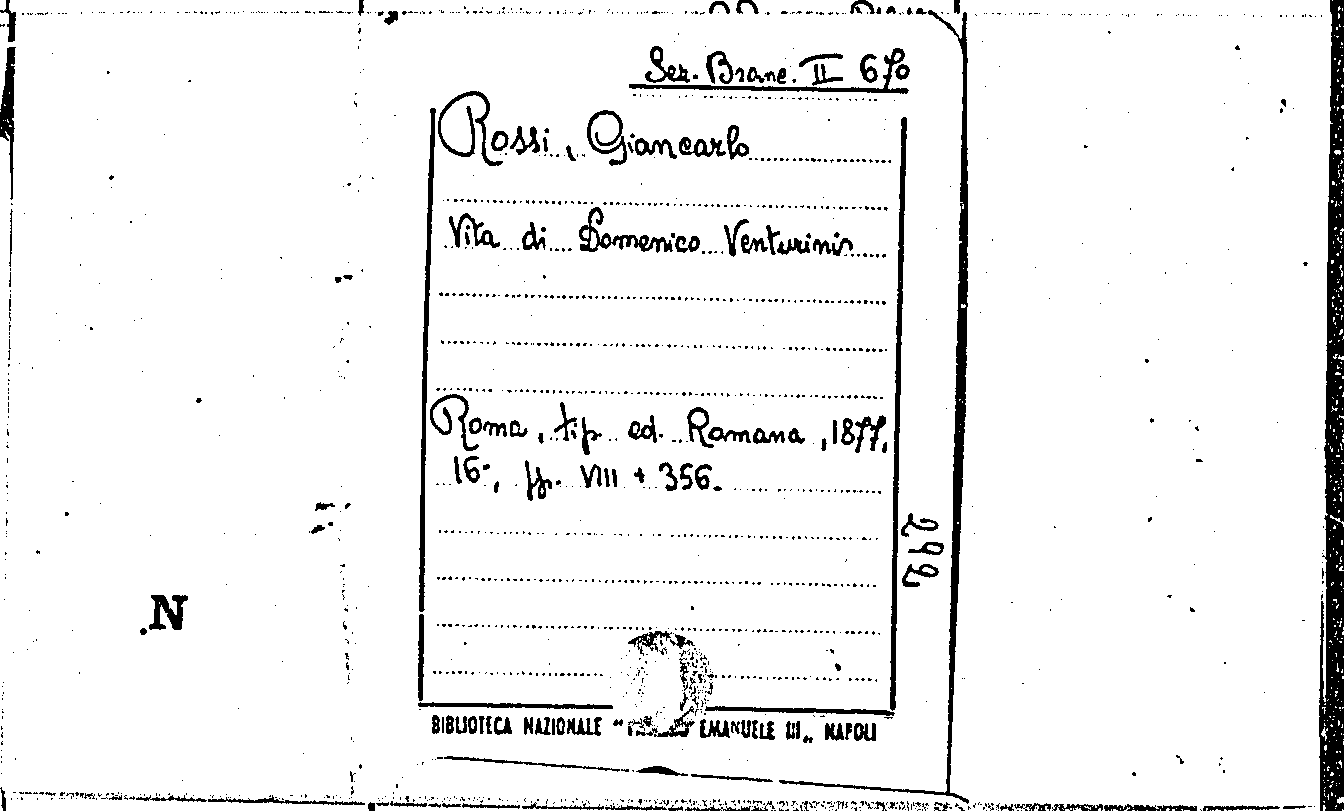 Sez. Branc. II 670
Rossi, Giancarlo
Vita di Domenico Venturinis
Roma, tip. ed. Romana, 1877,
16°, pp. VIII + 356.
292
N
BIBLIOTECA NAZIONALE " EMANUELE III„ NAPOLI